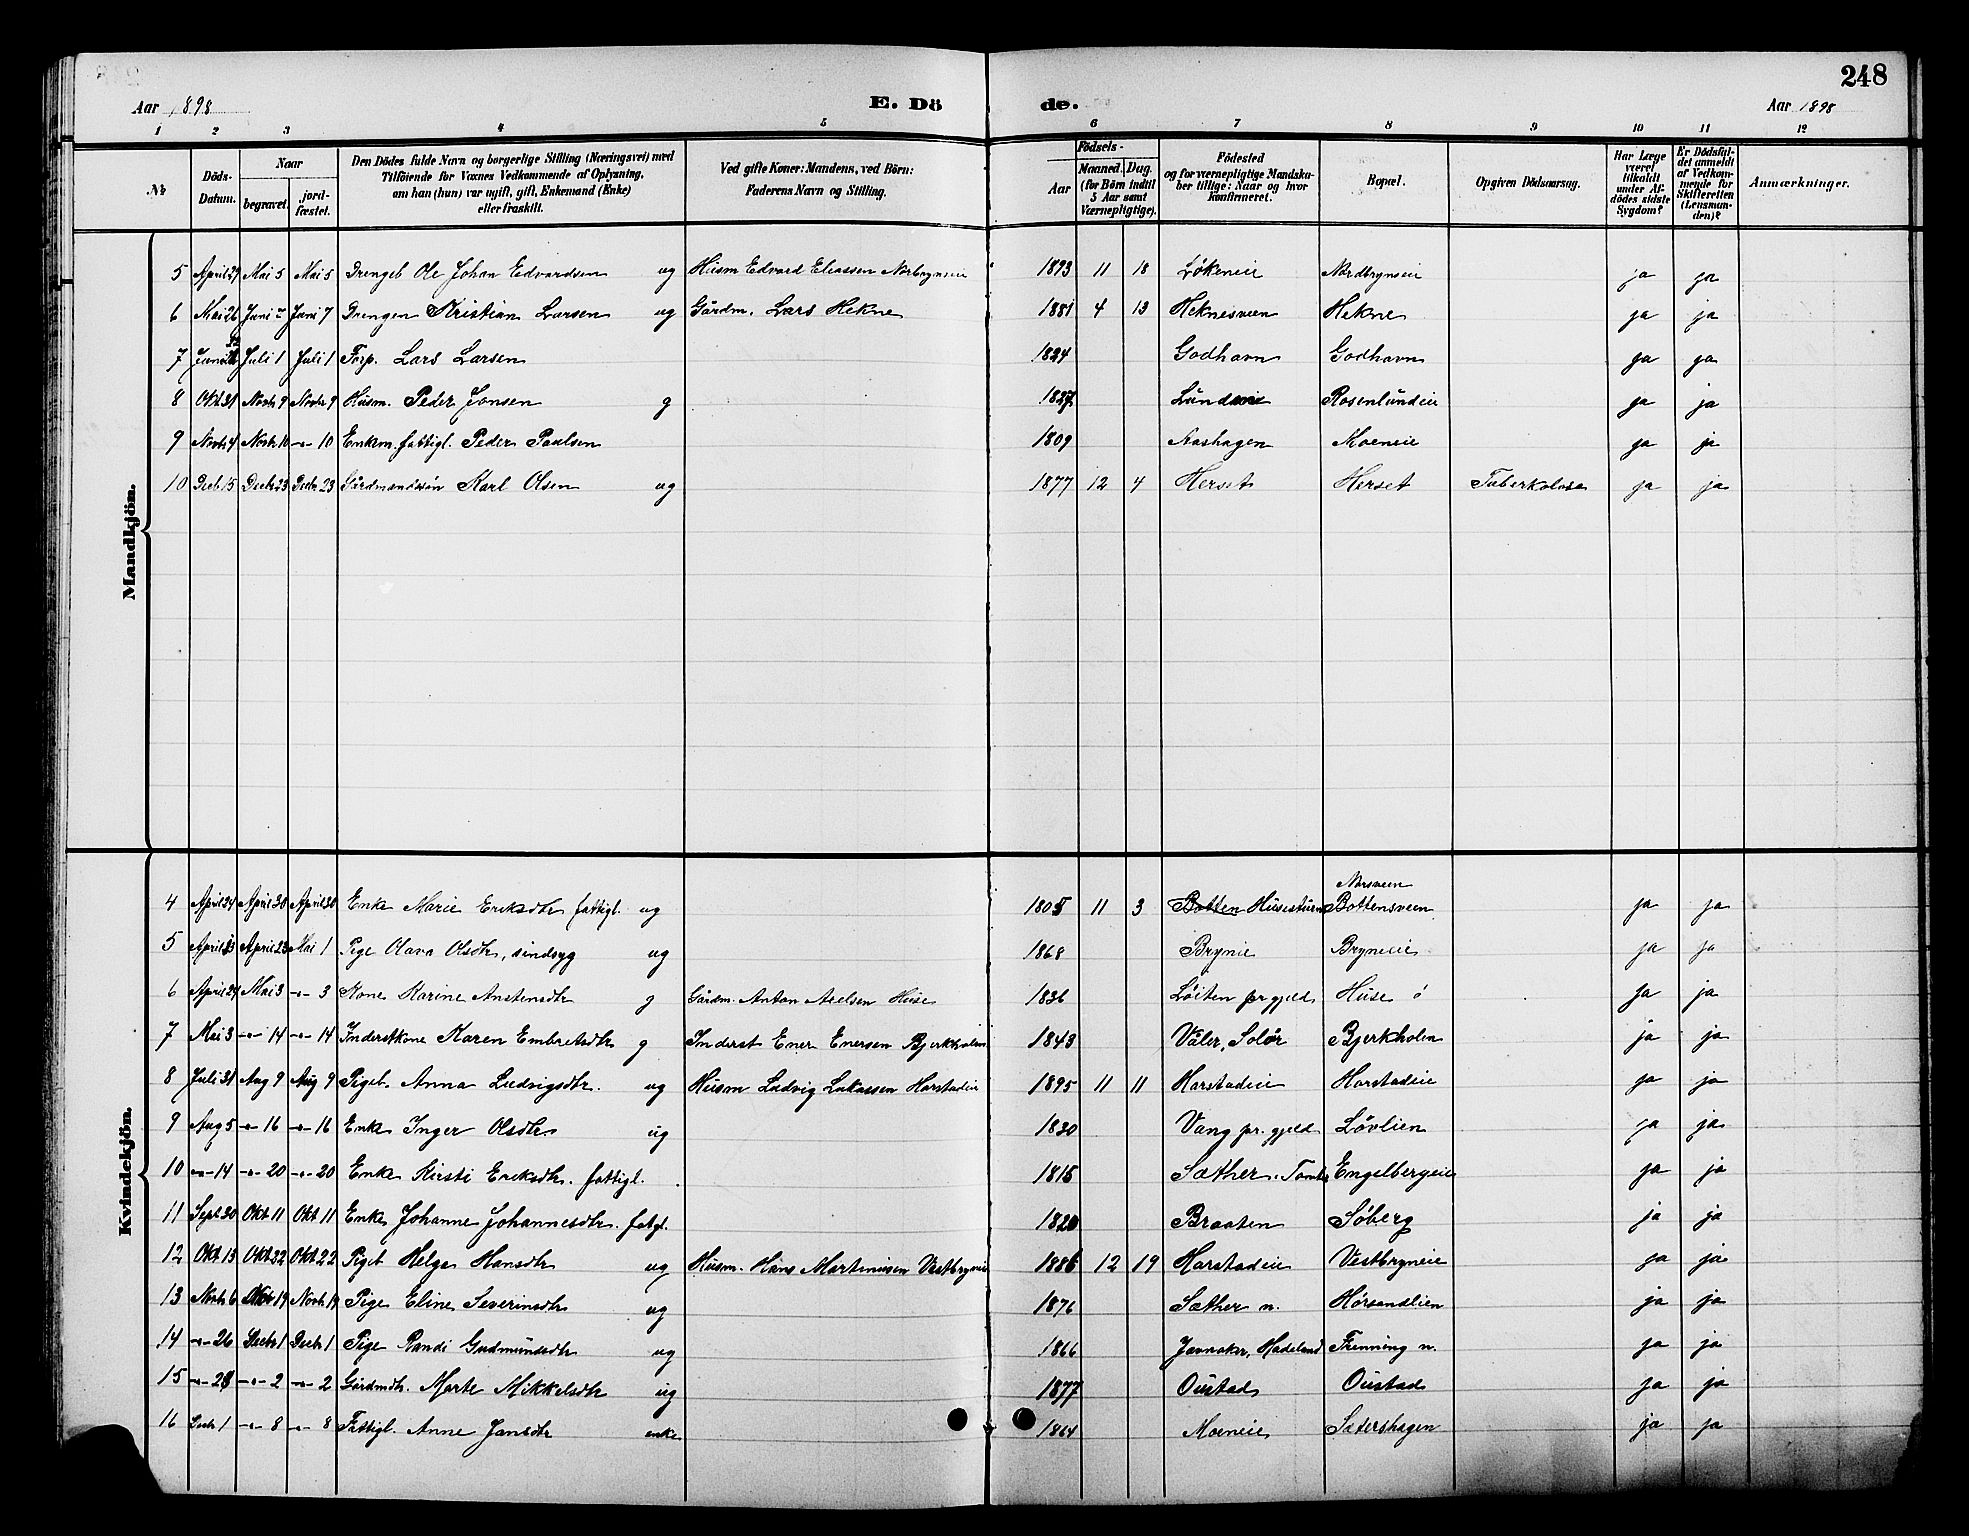 248
Aar 1898 E. Dö de. Aar 1898
1 2 3 4 5 6 7 8 9 10 11 12
No
Döds-Datum.
Naar
begravet.
jord-fæstet.
Den Dödes fulde Navn og borgerlige Stilling (Næringsvei) med
Tilföiende for Voxnes Vedkommende af Oplysning,
om han (hun) var ugift, gift, Enkemand (Enke)
eller fraskilt.
Ved gifte Koner: Mandens, ved Börn:
Faderens Navn og Stilling.
Födsels-
Aar
Maaned. Dag.
(for Börn indtil
5 Aar samt
Værnepligtige).
Födested
og for værnepligtige Mandska-
ber tillige: Naar og hvor
konfirmeret.
Bopæl.
Opgiven Dödsaarsag.
Har Læge
været
tilkaldt
under Af-
dödes sidste
Sygdom?
Er Dödsfal-
det anmeldt
af Vedkom-
mende for
Skifteretten
(Lensman-
den)?
Anmærkninger.
Mandkjön.
5 April 27 Mai 5 Mai 5 Drengeb Ole Johan Edvardsen ug Husm Edvard Eliassen Norbryneeie 1893 11 18 Lökeneie Nordbryneeie ja ja
6 Mai 26 Juni 7 Juni 7 Drengen Kristian Larsen ug Gårdm. Lars Hekne 1881 4 13 Heknesveen Hekne ja ja
7 Juni Juli 1 Juli 1 Insp. Lars Larsen 1824 Godhavn Godhavn ja ja
8 Okt 31 Novbr 9 Novbr 9 Husm. Peder Jonsen g 1827 Lundeie Rosenlundeie ja ja
9 Novbr 4 Novbr 10 -"- 10 Enkem. fattigl. Peder Paulsen 1809 Aashagen Moeneie ja ja
10 Decb. 15 Decbr 23 Decbr 23 Gårdmandssön Karl Olsen ug 1877 12 4 Herset Herset Tuberkolose ja ja
Kvindekjön.
4 April 24 April 30 April 30 Enke Marie Eriksdtr fattigl. ug 1805 11 3 Botten Husesturn Norsveen Bottensveen ja ja
5 April 13 April 23 Mai 1 Pige Olava Olsdtr, sindsyg ug 1868 Brynie Bryneeie ja ja
6 April 24 Mai 3 -"- 3 Kone Karine Anstensdtr g Gårdm. Anton Axelsen Huse 1836 Löiten pr.gjeld Huse ö ja ja
7 Mai 3 -"- 14 -"- 14 Inderstkone Karen Embretsdtr g Inderst Ener Enersen Bjerkholen 1843 Våler, Solör Bjerkholen ja ja
8 Juli 31 Aug 9 Aug 9 Pigeb. Anna Ludvigsdtr. ug Husm Ludvig Lukassen Harstadeie 1895 11 11 Harstadeie Harstadeie ja ja
9 Aug 5 -"- 16 -"- 16 Enke Inger Olsdtr. ug 1830 Vang pr.gjeld Lövlien ja ja
10 -"- 14 -"- 20 -"- 20 Enke Kirsti Eriksdtr. fattigl. 1815 Sæther, Tomter Engelbergeie ja ja
11 Sept 30 Okt 11 Okt 11 Enke Johanne Johannesdtr. fatgl. 1820 Braaten Söberg ja ja
12 Okt 13 Okt 22 Okt 22 Pigeb Helga Hansdtr ug Husm. Hans Martinusen Vestbryneie 1886 12 19 Harstadeie Vestbryneie ja ja
13 Novbr 6 Nov 19 Novbr 19 Pige Eline Severinsdtr ug 1876 Sæther n. Hörsandlien ja ja
14 -"- 26 Decbr 1 Decbr 1 Pige Randi Gudmundsdtr ug 1866 Jevnaker, Hadeland Frenning n. ja ja
15 -"- 28 -"- 2 -"- 2 Gårdmdtr. Marte Mikkelsdtr ug 1877 Oustad Oustad ja ja
16 Decbr 1 -"- 8 -"- 8 Fattigl. Anne Jansdtr enke 1864 Moeneie Sætershagen ja ja